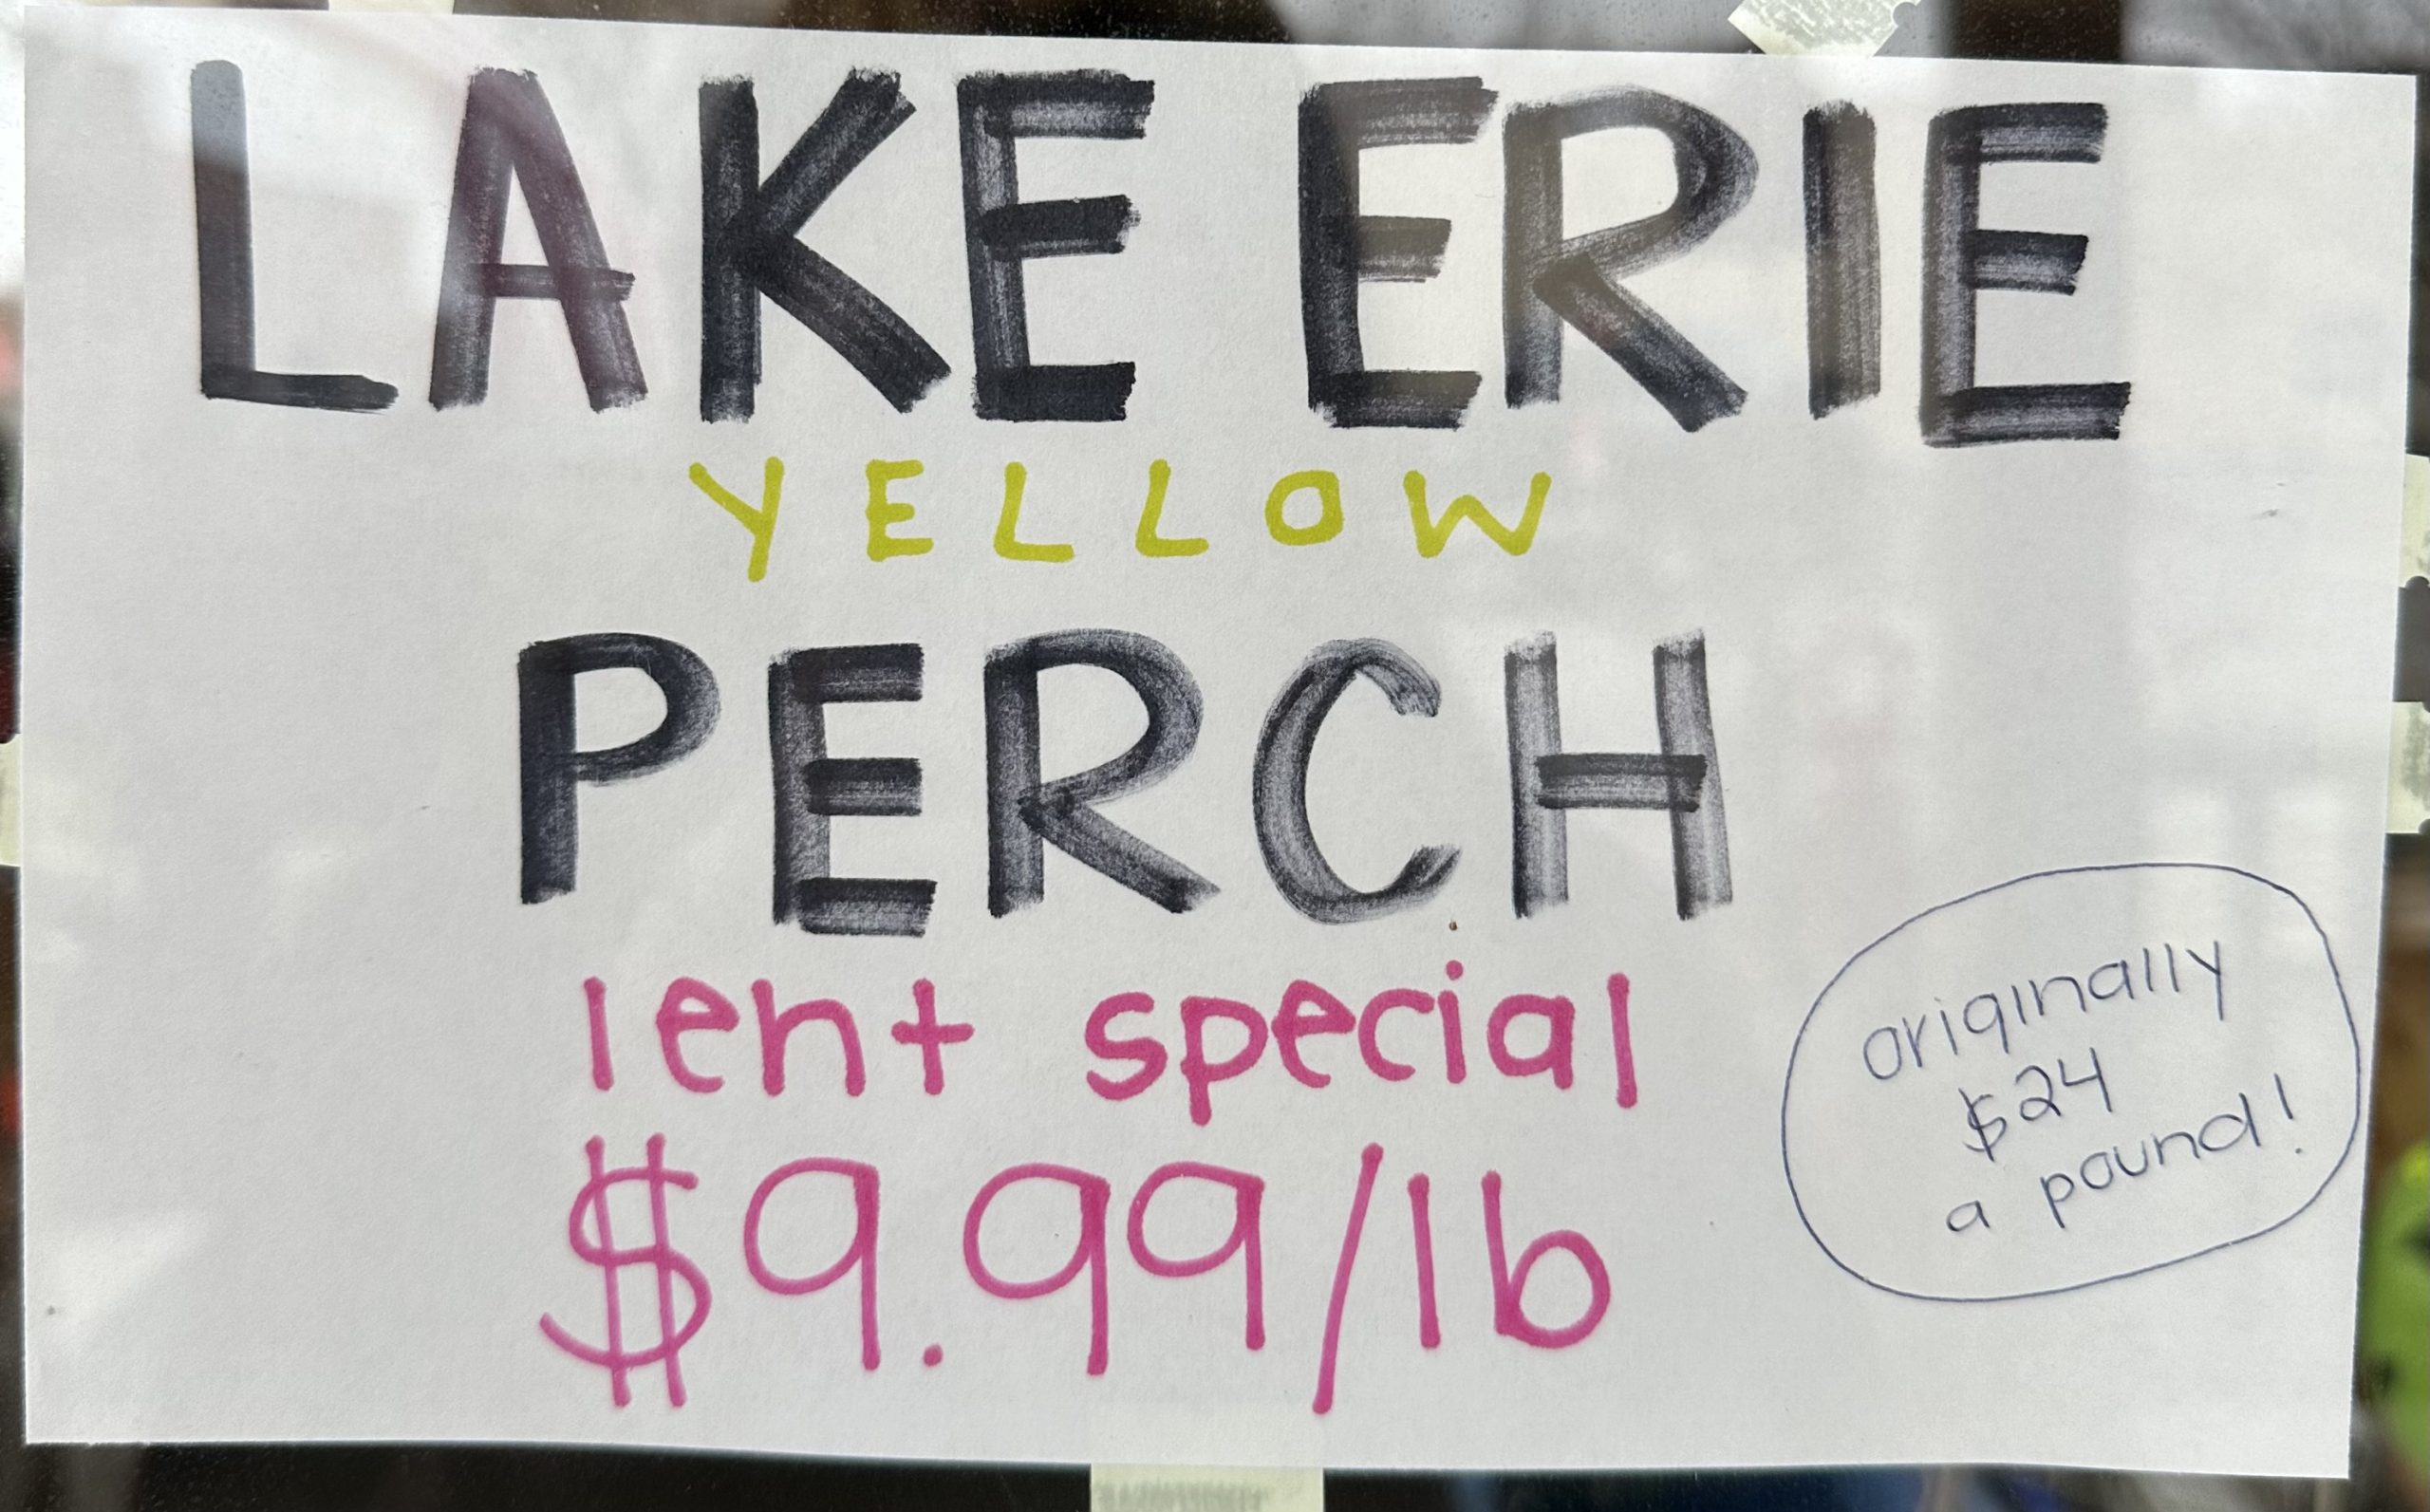 LAKE ERIE
YELLOW
PERCH
lent special
$9.99/lb
originally
$24
a pound!